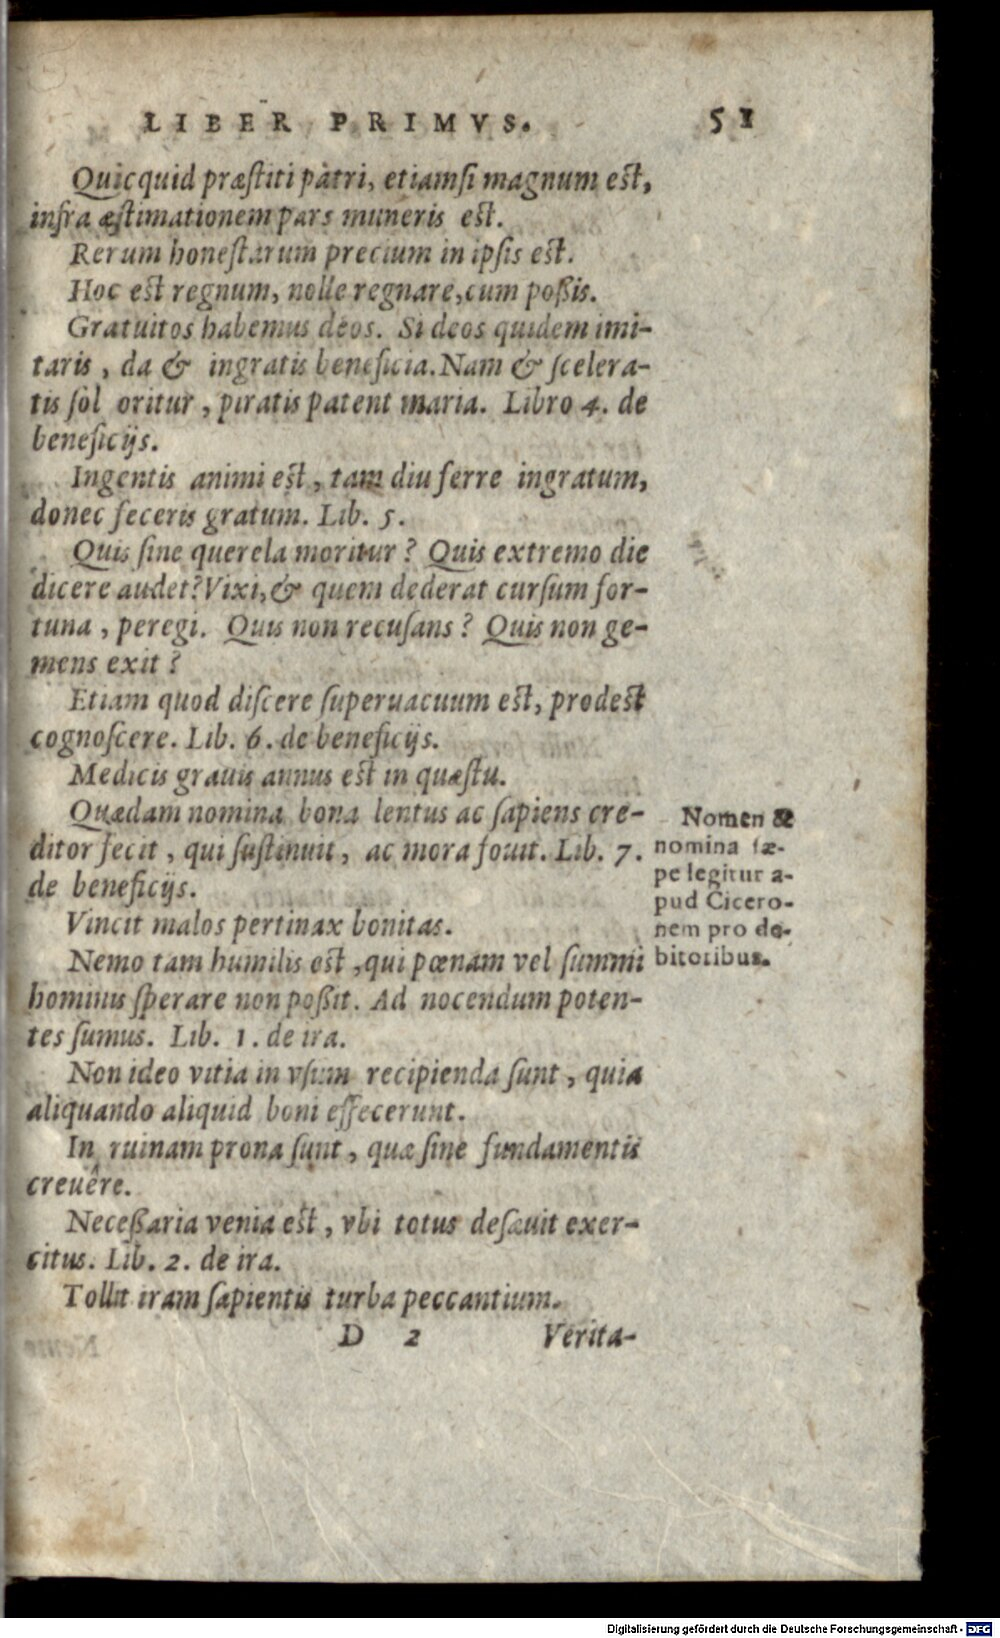 LIBER PRIMVS. 51
Quicquid præſtiti pàtri, etiamſi magnum eſt,
infra æſtimationem pars muneris eſt.
Rerum honeſtarum precium in ipſis eſt.
Hoc eſt regnum, nolle regnare, cum poßis.
Gratuitos habemus deos. Si deos quidem imi-
taris, da & ingratis beneficia. Nam & ſcelera-
tis ſol oritur, piratis patent maria. Libro 4. de
beneficijs.
Ingentis animi eſt, tam diu ferre ingratum,
donec feceris gratum. Lib. 5.
Quis ſine querela moritur? Quis extremo die
dicere audet? Vixi, & quem dederat curſum for-
tuna, peregi. Quis non recuſans? Quis non ge-
mens exit?
Etiam quod diſcere ſuperuacuum eſt, prodeſt
cognoſcere. Lib. 6. de beneficijs.
Medicis grauis annus eſt in quæſtu.
Quædam nomina bona lentus ac ſapiens cre-
ditor fecit, qui ſuſtinuit, ac mora fouit. Lib. 7.
de beneficijs.
Nomen &
nomina ſæ-
pe legitur a-
pud Cicero-
nem pro de-
bitoribus.
Vincit malos pertinax bonitas.
Nemo tam humilis eſt, qui pœnam vel ſummi
hominis ſperare non poßit. Ad nocendum poten-
tes ſumus. Lib. 1. de ira.
Non ideo vitia in vſum recipienda ſunt, quia
aliquando aliquid boni effecerunt.
In ruinam prona ſunt, quæ ſine fundamentis
creuêre.
Neceßaria venia eſt, vbi totus deſæuit exer-
citus. Lib. 2. de ira.
Tollit iram ſapientis turba peccantium.
D 2 Verita-
Digitalisierung gefördert durch die Deutsche Forschungsgemeinschaft - DFG